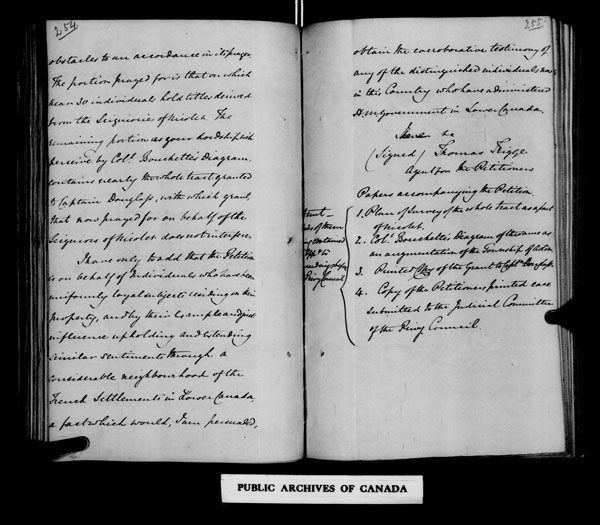 254
obstacles to an accordance in its prayer
The portion prayed for is that on which
near 30 individuals hold titles derived
from the Seigniories of Nicolet. The
remaining portion as your Lordship will
perceive by Col. Bouchette's Diagram
contains nearly the whole tract granted
to Captain Douglass, with which grant,
that now prayed for on behalf of the
Seigniors of Nicolet does not interfere.
I have only to add that the Petition
is on behalf of Individuals who have been
uniformly loyal subjects residing on their
property, and by their Example and just
influence upholding and extending
similar sentiments through a
considerable neighbourhood of the
French Settlements in Lower Canada,
a fact which would, I am persuaded,
255
obtain the corroborative testimony of
any of the distinguished individuals now
in this Country who have administered
H. M. Government in Lower Canada.
I have &c
(Signed) Thomas Trigge
Agent for the Petitioners
Papers accompanying the Petition.
1. Plan of Survey of the whole tract as a part
of Nicolet.
2. Col. Bouchette's Diagram of the same as
an augmentation of the Township of Aston
3. Printed Copy of the Grant to Capt. Douglass.
4. Copy of the Petitioners printed case
submitted to the Judicial Committee
of the Privy Council.
of them
contained
Privy Council
PUBLIC ARCHIVES OF CANADA